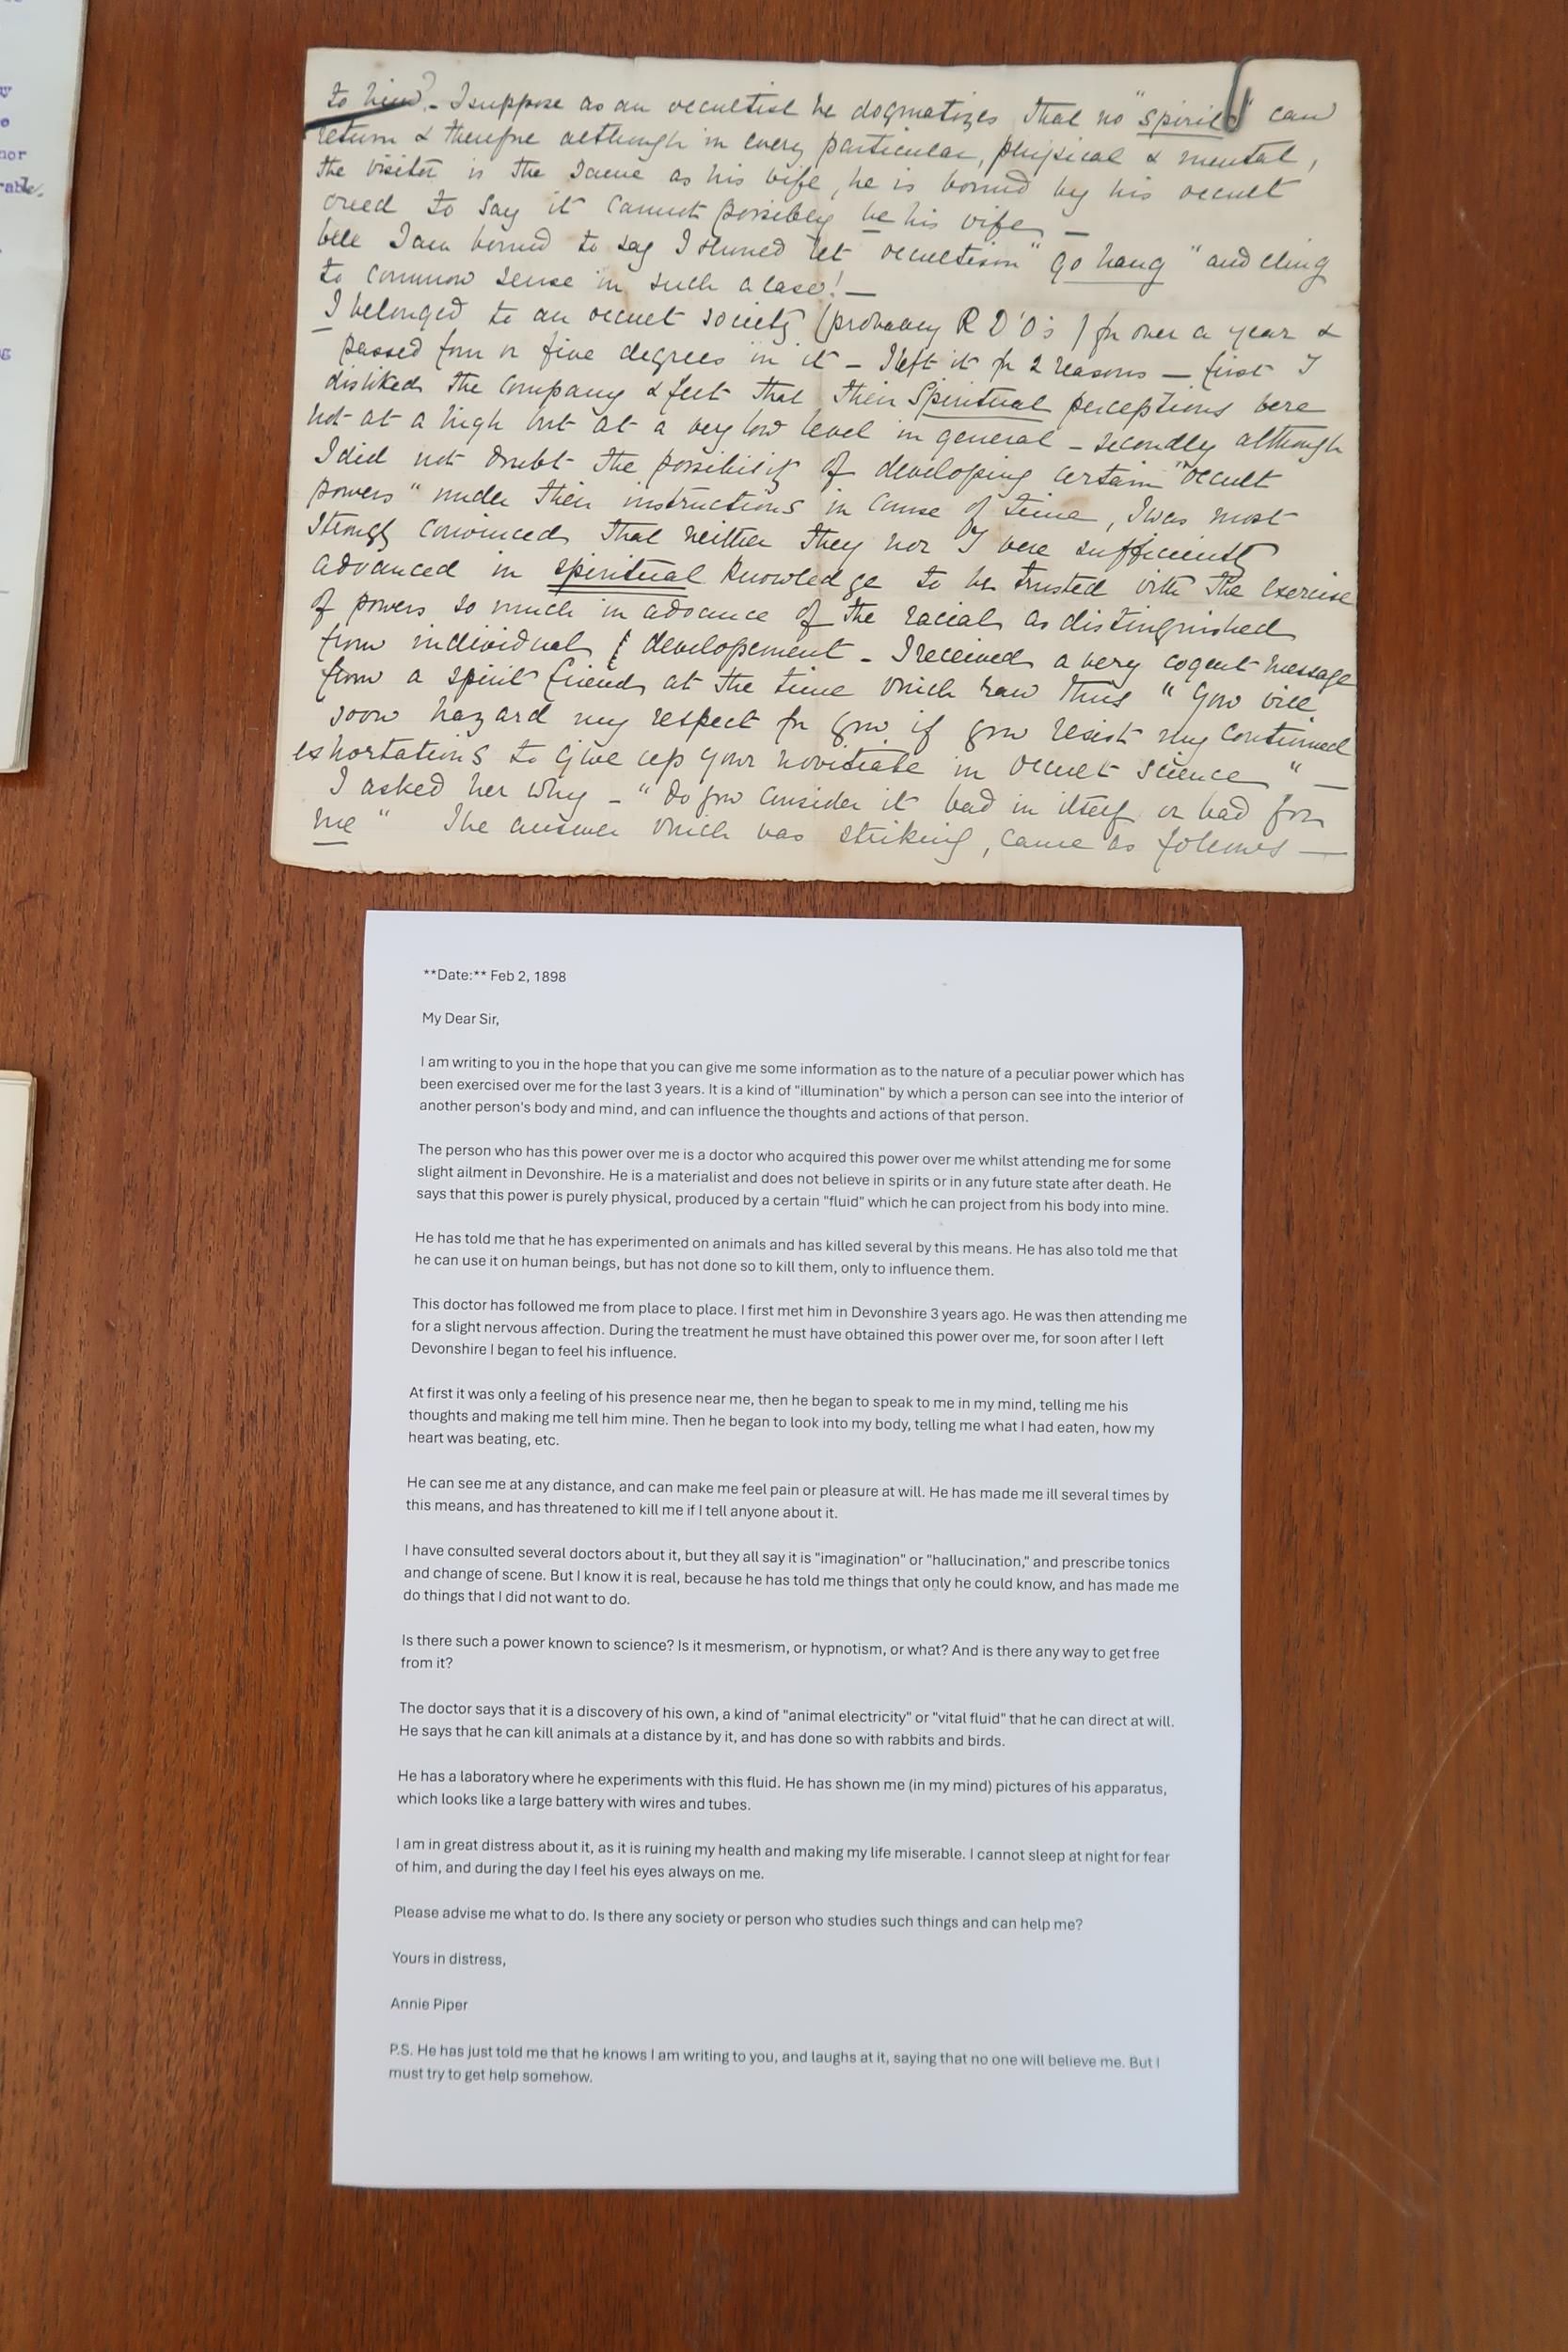 to him. - I suppose as an occultist he dogmatizes that no "spirits" can
return & therefore although in every particular, physical & mental,
the visitor is the same as his wife, he is bound by his occult
creed to say it cannot possibly be his wife -
well I am bound to say I should let occultism "go hang" and cling
to common sense in such a case! -
I belonged to an occult society (probably R D'O's) for over a year &
passed four or five degrees in it - I left it for 2 reasons - first I
disliked the company & felt that their Spiritual perceptions were
not at a high but at a very low level in general - secondly although
I did not doubt the possibility of developing certain "occult
powers" under their instructions in course of time, I was most
strongly convinced that neither they nor I were sufficiently
advanced in spiritual knowledge to be trusted with the exercise
of powers so much in advance of the racial as distinguished
from individual developement - I received a very cogent message
from a spirit friend at the time which ran thus "You will
soon hazard my respect for you if you resist my continued
exhortations to give up your novitiate in occult science" -
I asked her why - "Do you consider it bad in itself or bad for
me" The answer which was striking, came as follows -
**Date:** Feb 2, 1898
My Dear Sir,
I am writing to you in the hope that you can give me some information as to the nature of a peculiar power which has
been exercised over me for the last 3 years. It is a kind of "illumination" by which a person can see into the interior of
another person's body and mind, and can influence the thoughts and actions of that person.
The person who has this power over me is a doctor who acquired this power over me whilst attending me for some
slight ailment in Devonshire. He is a materialist and does not believe in spirits or in any future state after death. He
says that this power is purely physical, produced by a certain "fluid" which he can project from his body into mine.
He has told me that he has experimented on animals and has killed several by this means. He has also told me that
he can use it on human beings, but has not done so to kill them, only to influence them.
This doctor has followed me from place to place. I first met him in Devonshire 3 years ago. He was then attending me
for a slight nervous affection. During the treatment he must have obtained this power over me, for soon after I left
Devonshire I began to feel his influence.
At first it was only a feeling of his presence near me, then he began to speak to me in my mind, telling me his
thoughts and making me tell him mine. Then he began to look into my body, telling me what I had eaten, how my
heart was beating, etc.
He can see me at any distance, and can make me feel pain or pleasure at will. He has made me ill several times by
this means, and has threatened to kill me if I tell anyone about it.
I have consulted several doctors about it, but they all say it is "imagination" or "hallucination," and prescribe tonics
and change of scene. But I know it is real, because he has told me things that only he could know, and has made me
do things that I did not want to do.
Is there such a power known to science? Is it mesmerism, or hypnotism, or what? And is there any way to get free
from it?
The doctor says that it is a discovery of his own, a kind of "animal electricity" or "vital fluid" that he can direct at will.
He says that he can kill animals at a distance by it, and has done so with rabbits and birds.
He has a laboratory where he experiments with this fluid. He has shown me (in my mind) pictures of his apparatus,
which looks like a large battery with wires and tubes.
I am in great distress about it, as it is ruining my health and making my life miserable. I cannot sleep at night for fear
of him, and during the day I feel his eyes always on me.
Please advise me what to do. Is there any society or person who studies such things and can help me?
Yours in distress,
Annie Piper
P.S. He has just told me that he knows I am writing to you, and laughs at it, saying that no one will believe me. But I
must try to get help somehow.